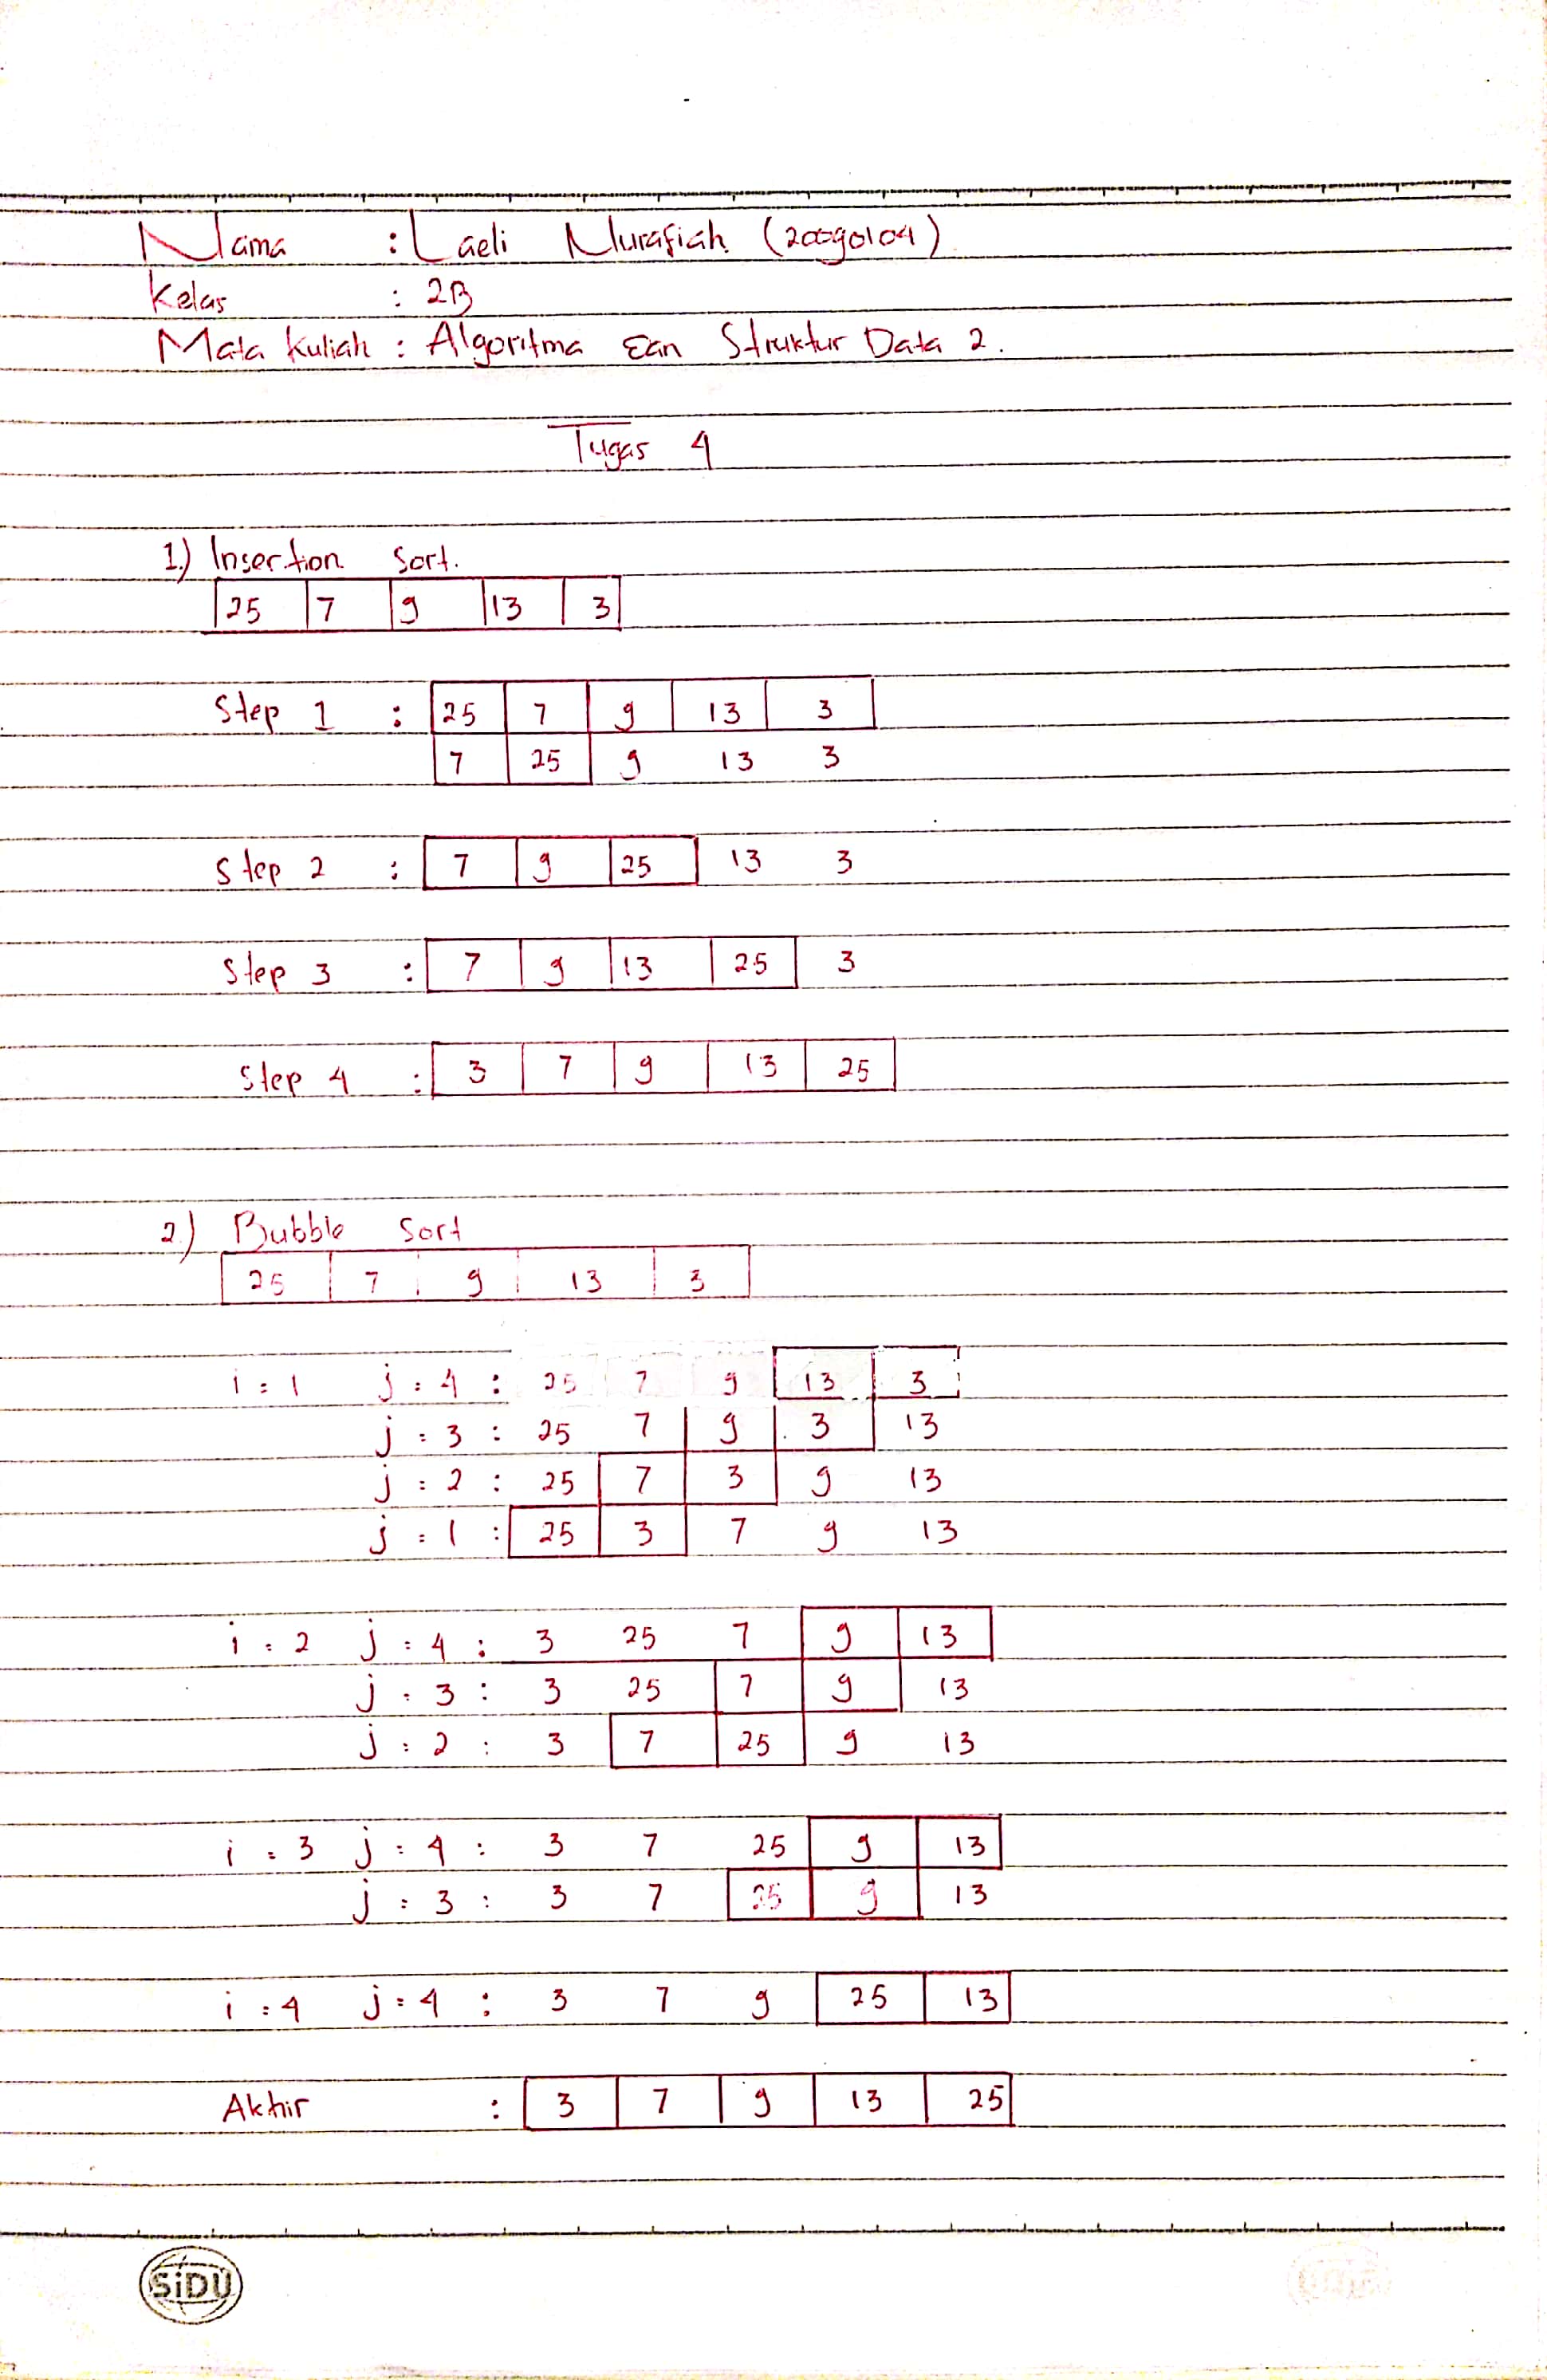 Nama : Laeli Nurafiah (20090104)
Kelas : 2B
Mata Kuliah : Algoritma Dan Struktur Data 2.
Tugas 4
1.) Insertion Sort.
25 7 9 13 3
Step 1 : 25 7 9 13 3
7 25 9 13 3
Step 2 : 7 9 25 13 3
Step 3 : 7 9 13 25 3
Step 4 : 3 7 9 13 25
2) Bubble Sort
25 7 9 13 3
i = 1 j = 4 : 25 7 9 13 3
j = 3 : 25 7 9 3 13
j = 2 : 25 7 3 9 13
j = 1 : 25 3 7 9 13
i = 2 j = 4 : 3 25 7 9 13
j = 3 : 3 25 7 9 13
j = 2 : 3 7 25 9 13
i = 3 j = 4 : 3 7 25 9 13
j = 3 : 3 7 25 9 13
i = 4 j = 4 : 3 7 9 25 13
Akhir : 3 7 9 13 25
SiDU